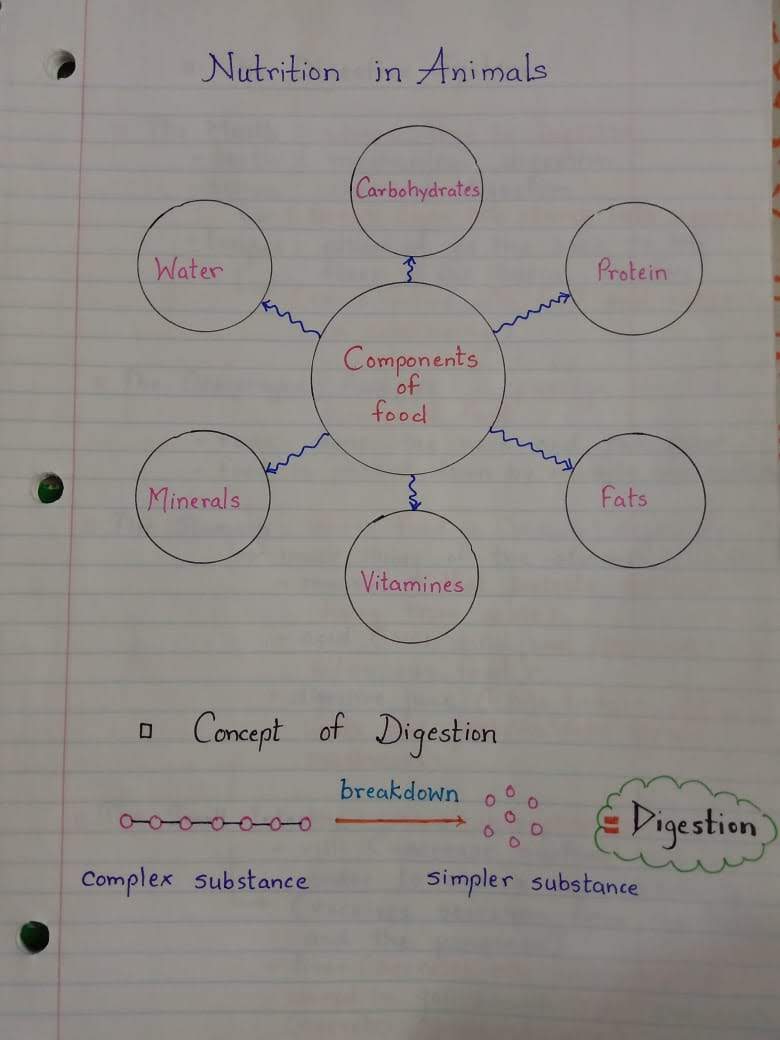 Nutrition in Animals
Carbohydrates
Water
Protein
Components
of
food
Minerals
Fats
Vitamines
Concept of Digestion
breakdown
= Digestion
complex substance
simpler substance